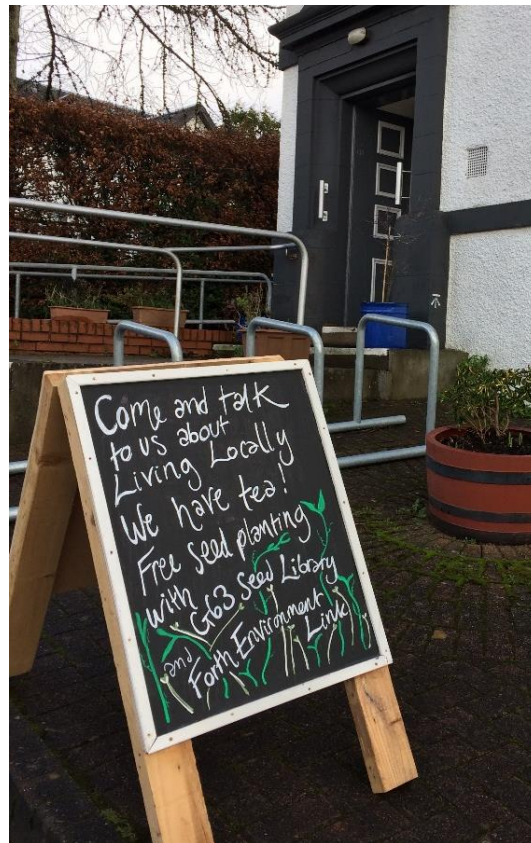 Come and talk
to us about
Living Locally
We have tea!
Free seed planting
with G63 Seed Library
and Forth Environment
Link